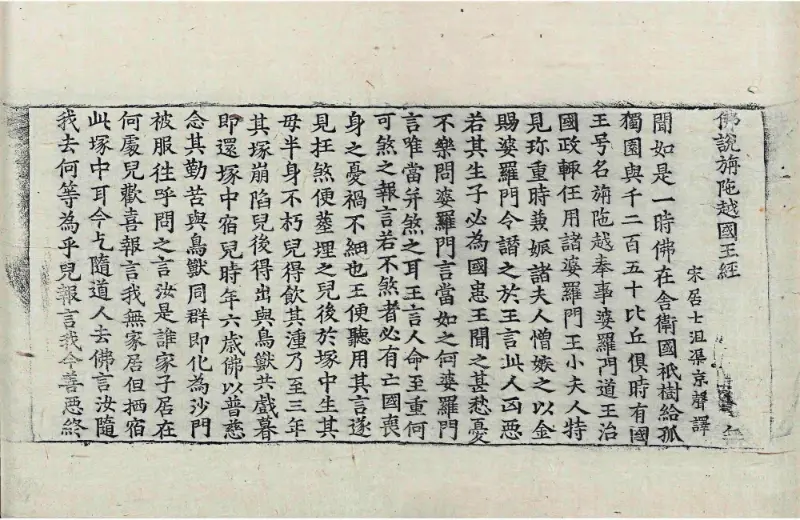 佛說旃陁越國王經
宋居士沮渠京聲譯
聞如是一時佛在舍衛國祇樹給孤
獨園與千二百五十比丘俱時有國
王号名旃陁越奉事婆羅門道王治
國政輙任用諸婆羅門王小夫人特
見珎重時兼娠諸夫人憎嫉之以金
賜婆羅門令譖之於王言此人凶惡
若其生子必為國患王聞之甚愁憂
不樂問婆羅門言當如之何婆羅門
言唯當并煞之耳王言人命至重何
可煞之報言若不煞者必有亡國喪
身之憂禍不細也王便聽用其言遂
見抂煞便葬埋之兒後於塚中生其
母半身不朽兒得飲其湩乃至三年
其塚崩陷兒後得出與鳥獸共戲暮
即還塚中宿兒時年六歳佛以普慈
念其勤苦與鳥獸同群即化為沙門
被服往呼問之言汝是誰家子居在
何處兒歡喜報言我無家居但栖宿
此塚中耳今乞隨道人去佛言汝隨
我去何等為乎兒報言我今善惡終